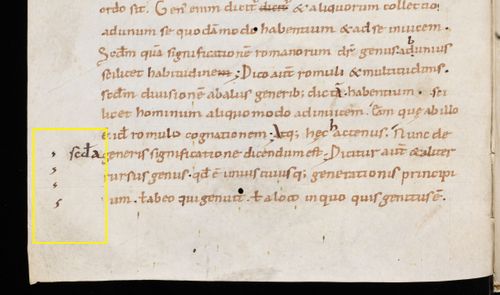 ordo sit. Gen' enim dicit' dicit' & aliquorum collectio
adunum se quodāmodo habentium & adse inuicem.
Scdm quā significationē romanorum dr̄ genus. abunius
scilicet habitudinem; Dico aut̄ romuli & multitudinis.
scdm diuisionē abaliis generib; dictā. habentium. sci
licet hominum aliquomodo adinuicem. Eam que abillo
ē. id romulo cognationem. Atq; hec hactenus. Nunc de
scd̄a generis significatione dicendum est. Dicitur aut̄ & aliter
rursus genus. qd ē uniuscuiusq; generationis principi
um. ł abeo qui genuit. ł aloco inquo quis genitus ē.